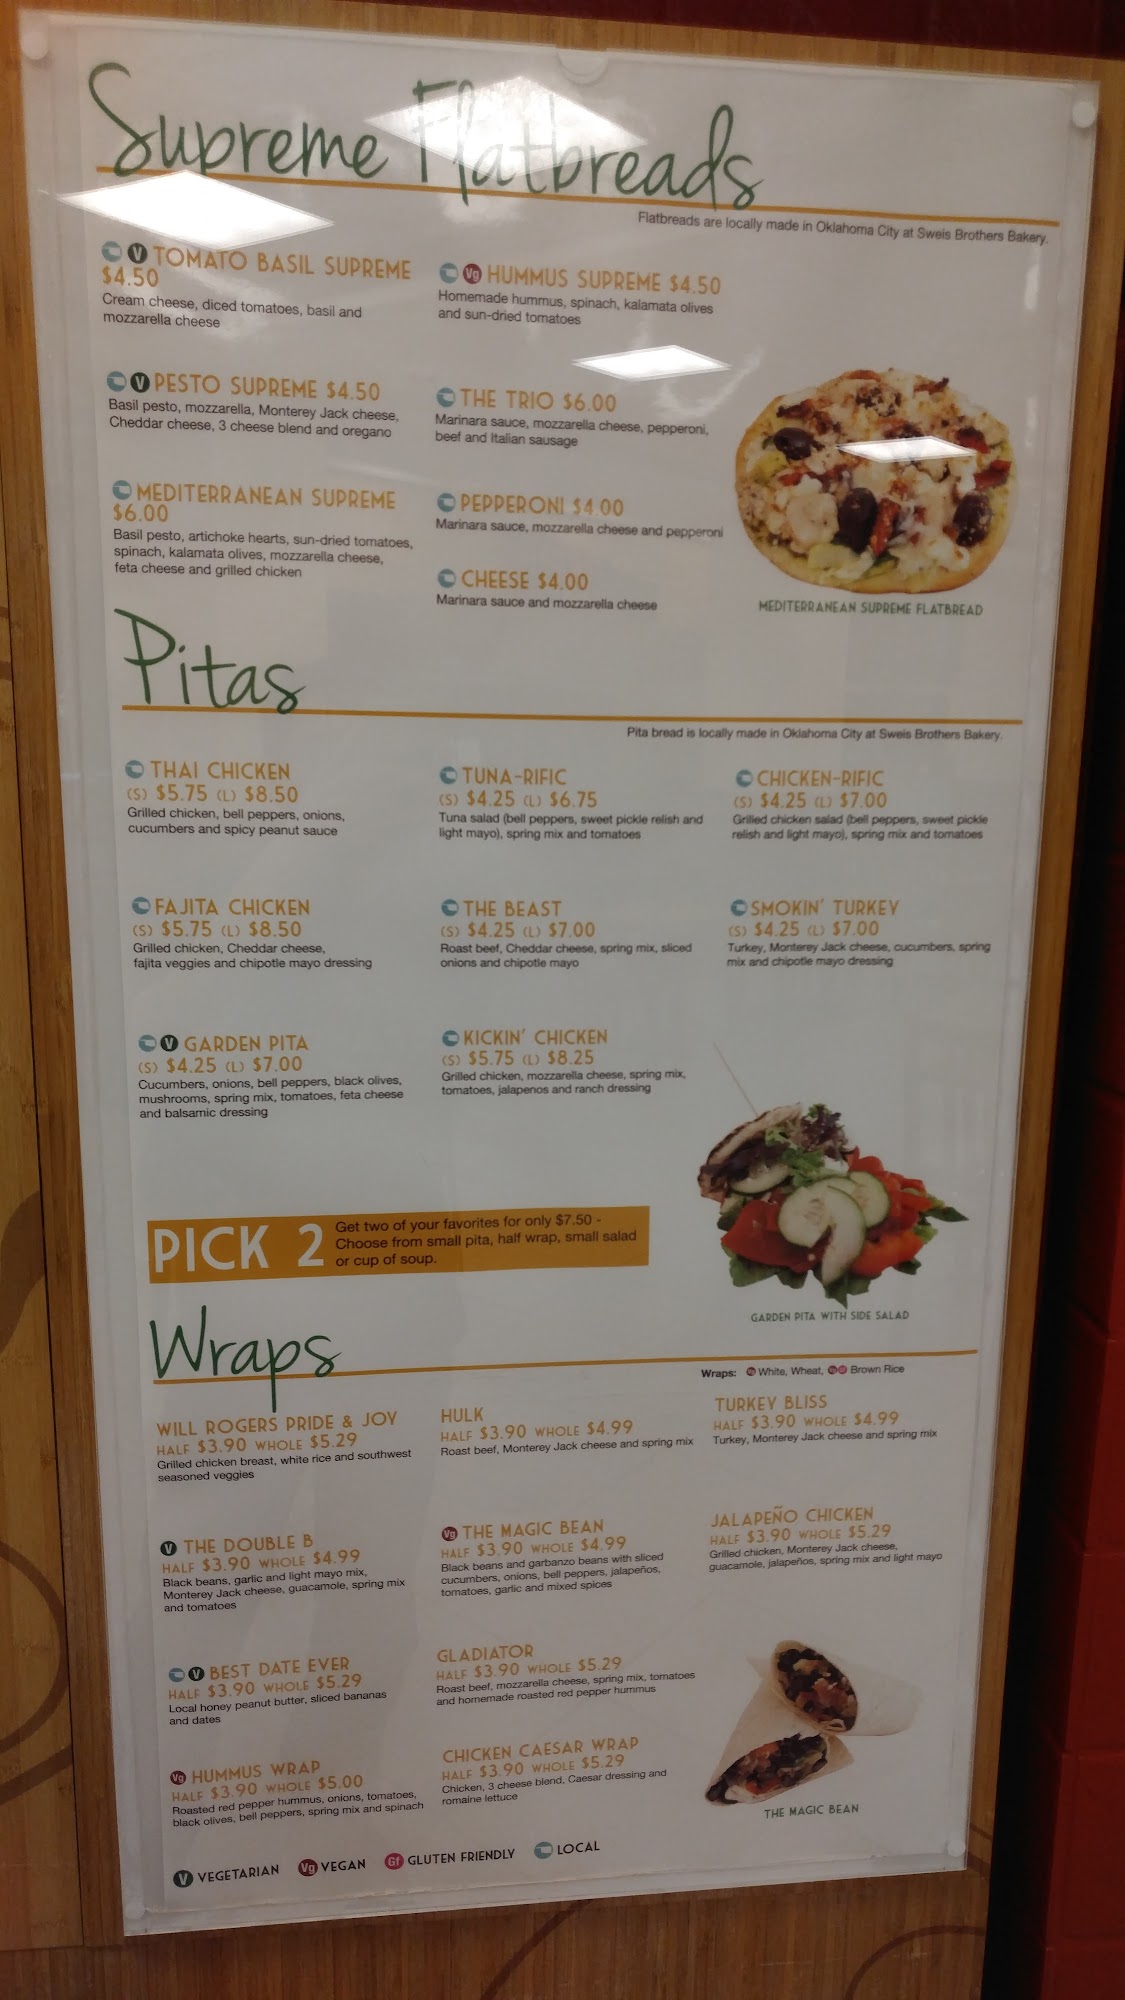 Supreme Flatbreads
Flatbreads are locally made in Oklahoma City at Sweis Brothers Bakery.
V TOMATO BASIL SUPREME
$4.50
Cream cheese, diced tomatoes, basil and
mozzarella cheese
Vg HUMMUS SUPREME $4.50
Homemade hummus, spinach, kalamata olives
and sun-dried tomatoes
V PESTO SUPREME $4.50
Basil pesto, mozzarella, Monterey Jack cheese,
Cheddar cheese, 3 cheese blend and oregano
THE TRIO $6.00
Marinara sauce, mozzarella cheese, pepperoni,
beef and Italian sausage
MEDITERRANEAN SUPREME
$6.00
Basil pesto, artichoke hearts, sun-dried tomatoes,
spinach, kalamata olives, mozzarella cheese,
feta cheese and grilled chicken
PEPPERONI $4.00
Marinara sauce, mozzarella cheese and pepperoni
CHEESE $4.00
Marinara sauce and mozzarella cheese
MEDITERRANEAN SUPREME FLATBREAD
Pitas
Pita bread is locally made in Oklahoma City at Sweis Brothers Bakery.
THAI CHICKEN
(S) $5.75 (L) $8.50
Grilled chicken, bell peppers, onions,
cucumbers and spicy peanut sauce
TUNA-RIFIC
(S) $4.25 (L) $6.75
Tuna salad (bell peppers, sweet pickle relish and
light mayo), spring mix and tomatoes
CHICKEN-RIFIC
(S) $4.25 (L) $7.00
Grilled chicken salad (bell peppers, sweet pickle
relish and light mayo), spring mix and tomatoes
FAJITA CHICKEN
(S) $5.75 (L) $8.50
Grilled chicken, Cheddar cheese,
fajita veggies and chipotle mayo dressing
THE BEAST
(S) $4.25 (L) $7.00
Roast beef, Cheddar cheese, spring mix, sliced
onions and chipotle mayo
SMOKIN' TURKEY
(S) $4.25 (L) $7.00
Turkey, Monterey Jack cheese, cucumbers, spring
mix and chipotle mayo dressing
V GARDEN PITA
(S) $4.25 (L) $7.00
Cucumbers, onions, bell peppers, black olives,
mushrooms, spring mix, tomatoes, feta cheese
and balsamic dressing
KICKIN' CHICKEN
(S) $5.75 (L) $8.25
Grilled chicken, mozzarella cheese, spring mix,
tomatoes, jalapenos and ranch dressing
PICK 2
Get two of your favorites for only $7.50 -
Choose from small pita, half wrap, small salad
or cup of soup.
GARDEN PITA WITH SIDE SALAD
Wraps
Wraps: Vg White, Wheat, Vg Gf Brown Rice
WILL ROGERS PRIDE & JOY
HALF $3.90 WHOLE $5.29
Grilled chicken breast, white rice and southwest
seasoned veggies
HULK
HALF $3.90 WHOLE $4.99
Roast beef, Monterey Jack cheese and spring mix
TURKEY BLISS
HALF $3.90 WHOLE $4.99
Turkey, Monterey Jack cheese and spring mix
V THE DOUBLE B
HALF $3.90 WHOLE $4.99
Black beans, garlic and light mayo mix,
Monterey Jack cheese, guacamole, spring mix
and tomatoes
Vg THE MAGIC BEAN
HALF $3.90 WHOLE $4.99
Black beans and garbanzo beans with sliced
cucumbers, onions, bell peppers, jalapeños,
tomatoes, garlic and mixed spices
JALAPEÑO CHICKEN
HALF $3.90 WHOLE $5.29
Grilled chicken, Monterey Jack cheese,
guacamole, jalapeños, spring mix and light mayo
V BEST DATE EVER
HALF $3.90 WHOLE $5.29
Local honey peanut butter, sliced bananas
and dates
GLADIATOR
HALF $3.90 WHOLE $5.29
Roast beef, mozzarella cheese, spring mix, tomatoes
and homemade roasted red pepper hummus
Vg HUMMUS WRAP
HALF $3.90 WHOLE $5.00
Roasted red pepper hummus, onions, tomatoes,
black olives, bell peppers, spring mix and spinach
CHICKEN CAESAR WRAP
HALF $3.90 WHOLE $5.29
Chicken, 3 cheese blend, Caesar dressing and
romaine lettuce
THE MAGIC BEAN
V VEGETARIAN Vg VEGAN Gf GLUTEN FRIENDLY LOCAL